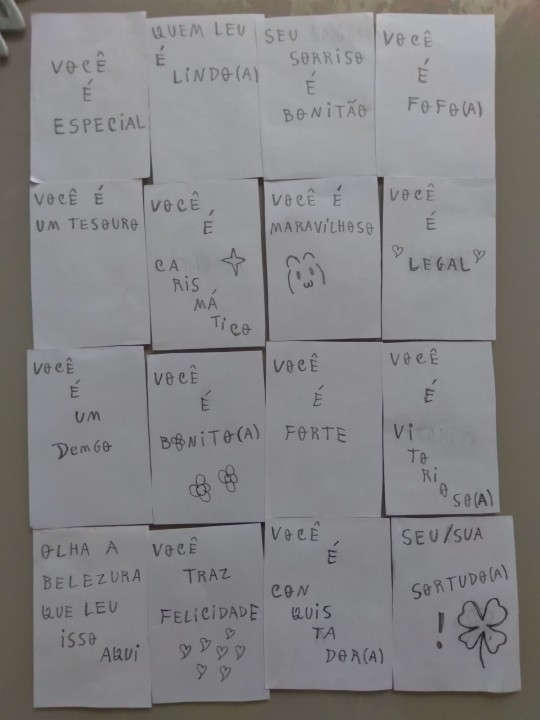 VOCÊ
É
ESPECIAL
QUEM LEU
É
LINDO(A)
SEU
SORRISO
É
BONITÃO
VOCÊ
É
FOFO(A)
VOCÊ É
UM TESOURO
VOCÊ
É
CA
RIS
MÁ
TICO
VOCÊ É
MARAVILHOSO
VOCÊ
É
LEGAL
VOCÊ
É
UM
DEMGO
VOCÊ
É
BONITO(A)
VOCÊ
É
FORTE
VOCÊ
É
VI
TO
RI
O
SO(A)
OLHA A
BELEZURA
QUE LEU
ISSO
AQUI
VOCÊ
TRAZ
FELICIDADE
VOCÊ
É
CON
QUIS
TA
DOR(A)
SEU/SUA
SORTUDO(A)
!